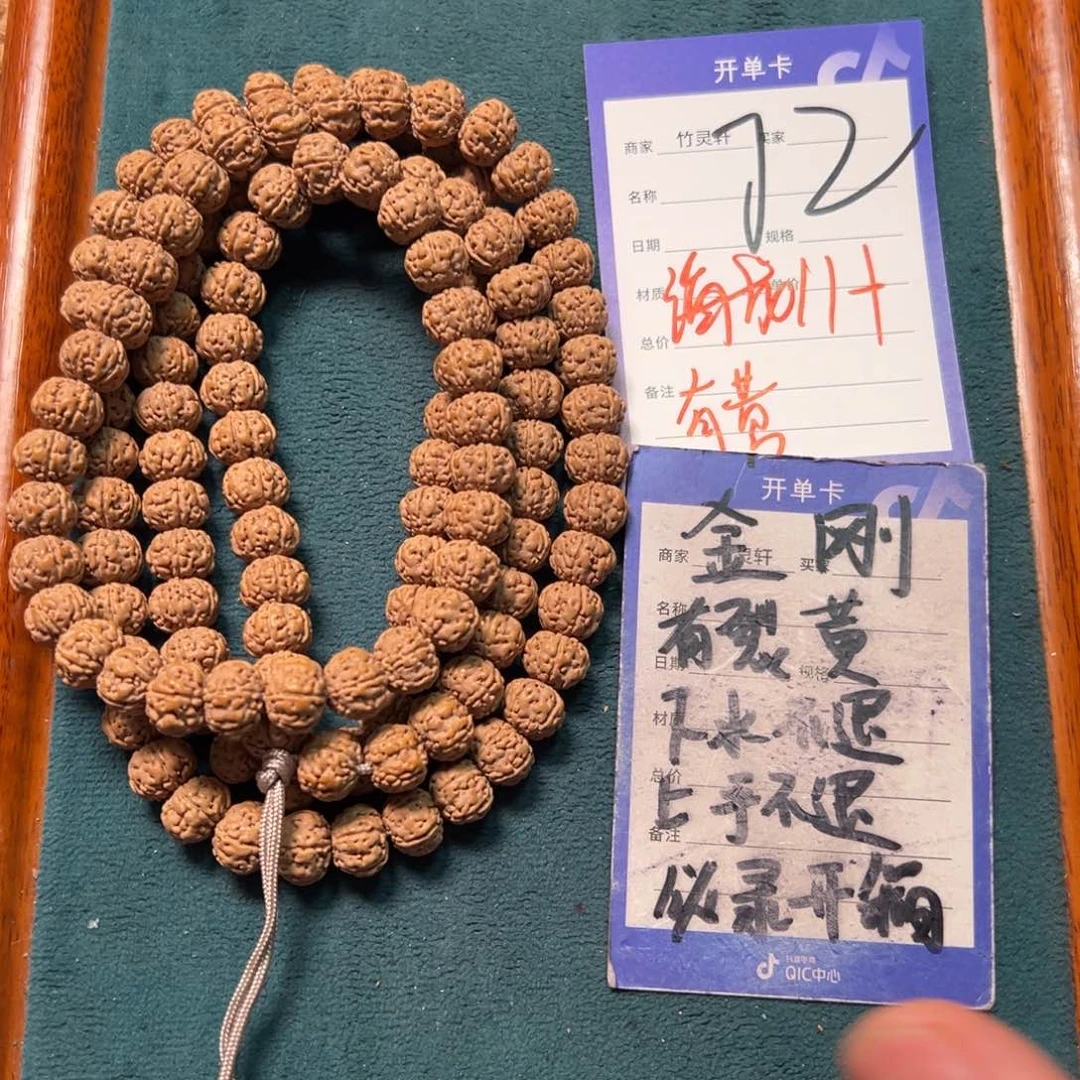 开单卡
商家 竹灵轩 买家
12
名称
日期 规格
材质 单价
总价
备注 有黄
开单卡
金刚
商家 竹灵轩 买家
名称
有裂黄
日期 规格
材质
下水不退
总价
上手不退
备注
必录开箱
抖音电商
QIC中心